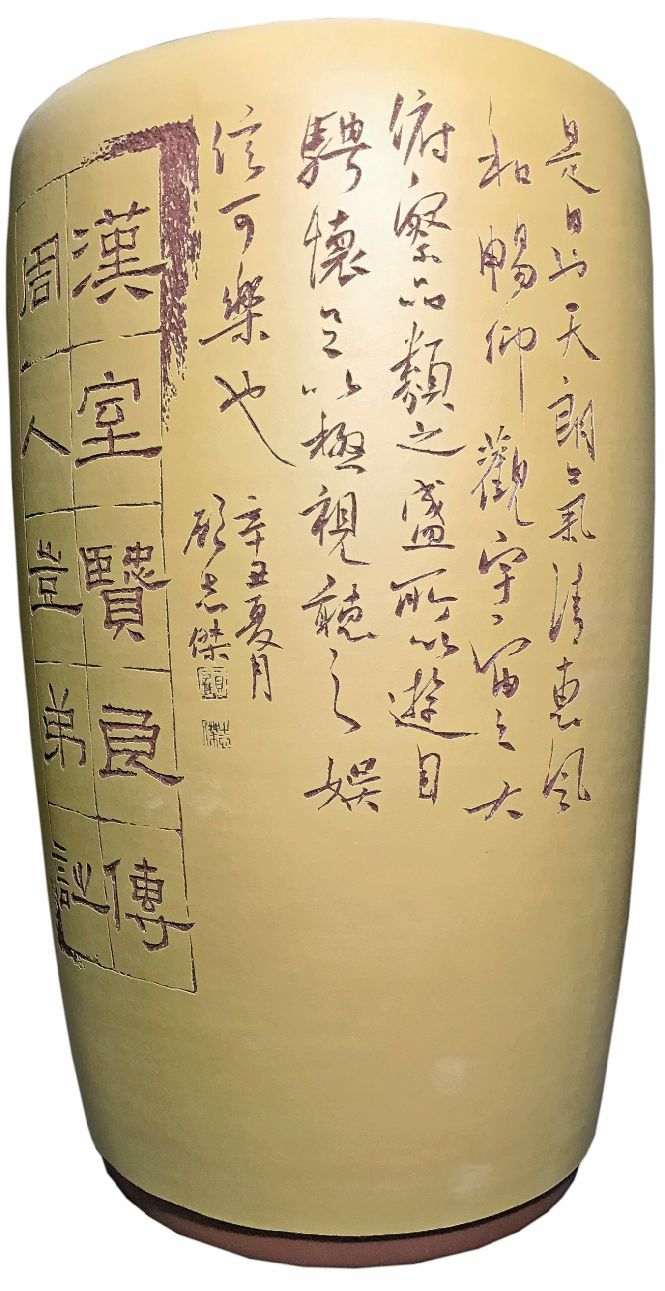 是日也天朗氣清惠風
和暢仰觀宇宙之大
俯察品類之盛所以遊目
騁懷足以極視聽之娛
信可樂也
辛丑夏月
顧志傑
漢室賢良傳
周人豈弟詩